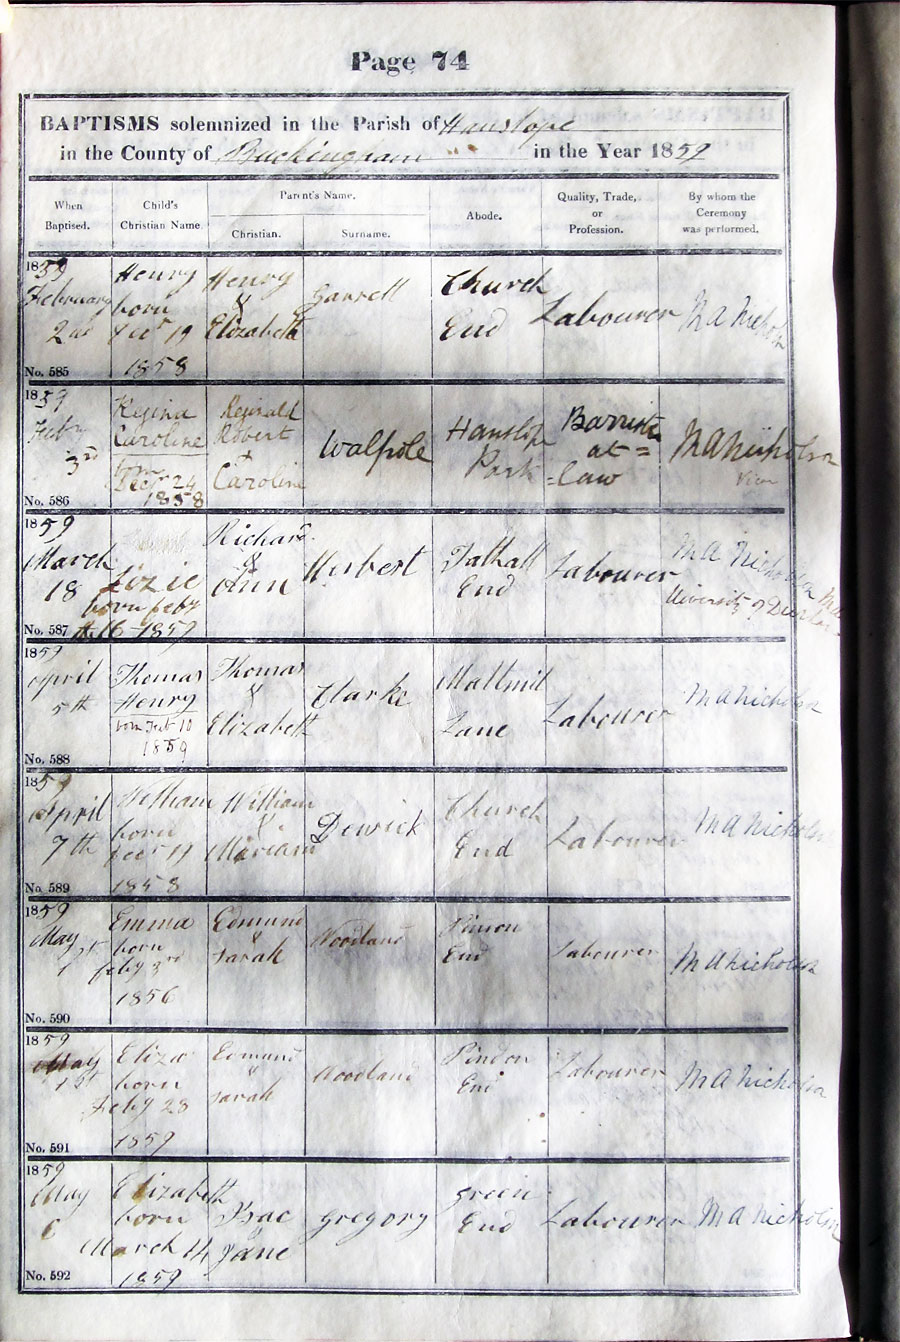 Page 74
BAPTISMS solemnized in the Parish of Hanslope
in the County of Buckingham in the Year 1859
When Baptised.
Child's Christian Name.
Parent's Name.
Christian.
Surname.
Abode.
Quality, Trade, or Profession.
By whom the Ceremony was performed.
1859
February
2nd
No. 585
Henry
born
19
1858
Henry
&
Elizabeth
Church
End
Labourer
M A Nicholson
1859
Feby
3rd
No. 586
Regina
Caroline
born
Decr 24
1858
Reginald
Robert
&
Caroline
Walpole
Hanslope
Park
Barrister
at =
= law
M A Nicholson
1859
March
18
No. 587
Lizie
born Feby
16 1859
Richard
&
Ann
Herbert
Tathall
End
Labourer
M A Nicholson
University of
1859
April
5th
No. 588
Thomas
Henry
born Feb 10
1859
Thomas
&
Elizabeth
Clarke
Maltmill
Lane
Labourer
M A Nicholson
1859
April
7th
No. 589
William
born
1858
William
&
Miriam
Dewick
Church
End
Labourer
M A Nicholson
1859
May
1st
No. 590
Emma
born
feby 3rd
1856
Edmund
&
Sarah
Woodland
End
Labourer
M A Nicholson
1859
May
1st
No. 591
Eliza
born
Feby 28
1859
Edmund
&
Sarah
Woodland
Pindon
End
Labourer
M A Nicholson
1859
May
No. 592
Elizabeth
born
March 14
1859
Isac
&
Jane
Gregory
Green
End
Labourer
M A Nicholson